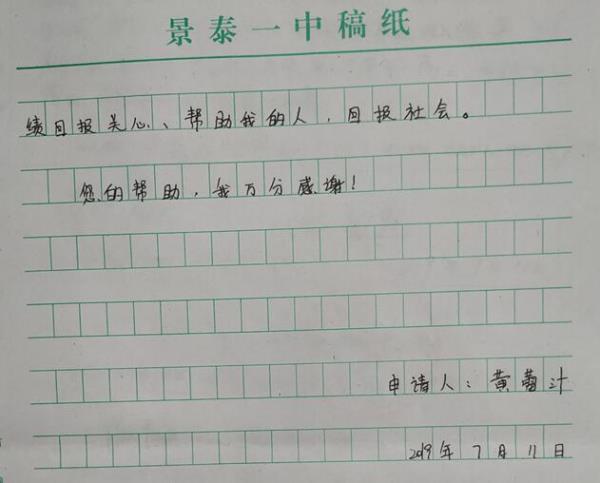 景泰一中稿纸
绩回报关心、帮助我的人，回报社会。
您的帮助，我万分感谢！
申请人：黄蕾汁
2019年7月11日